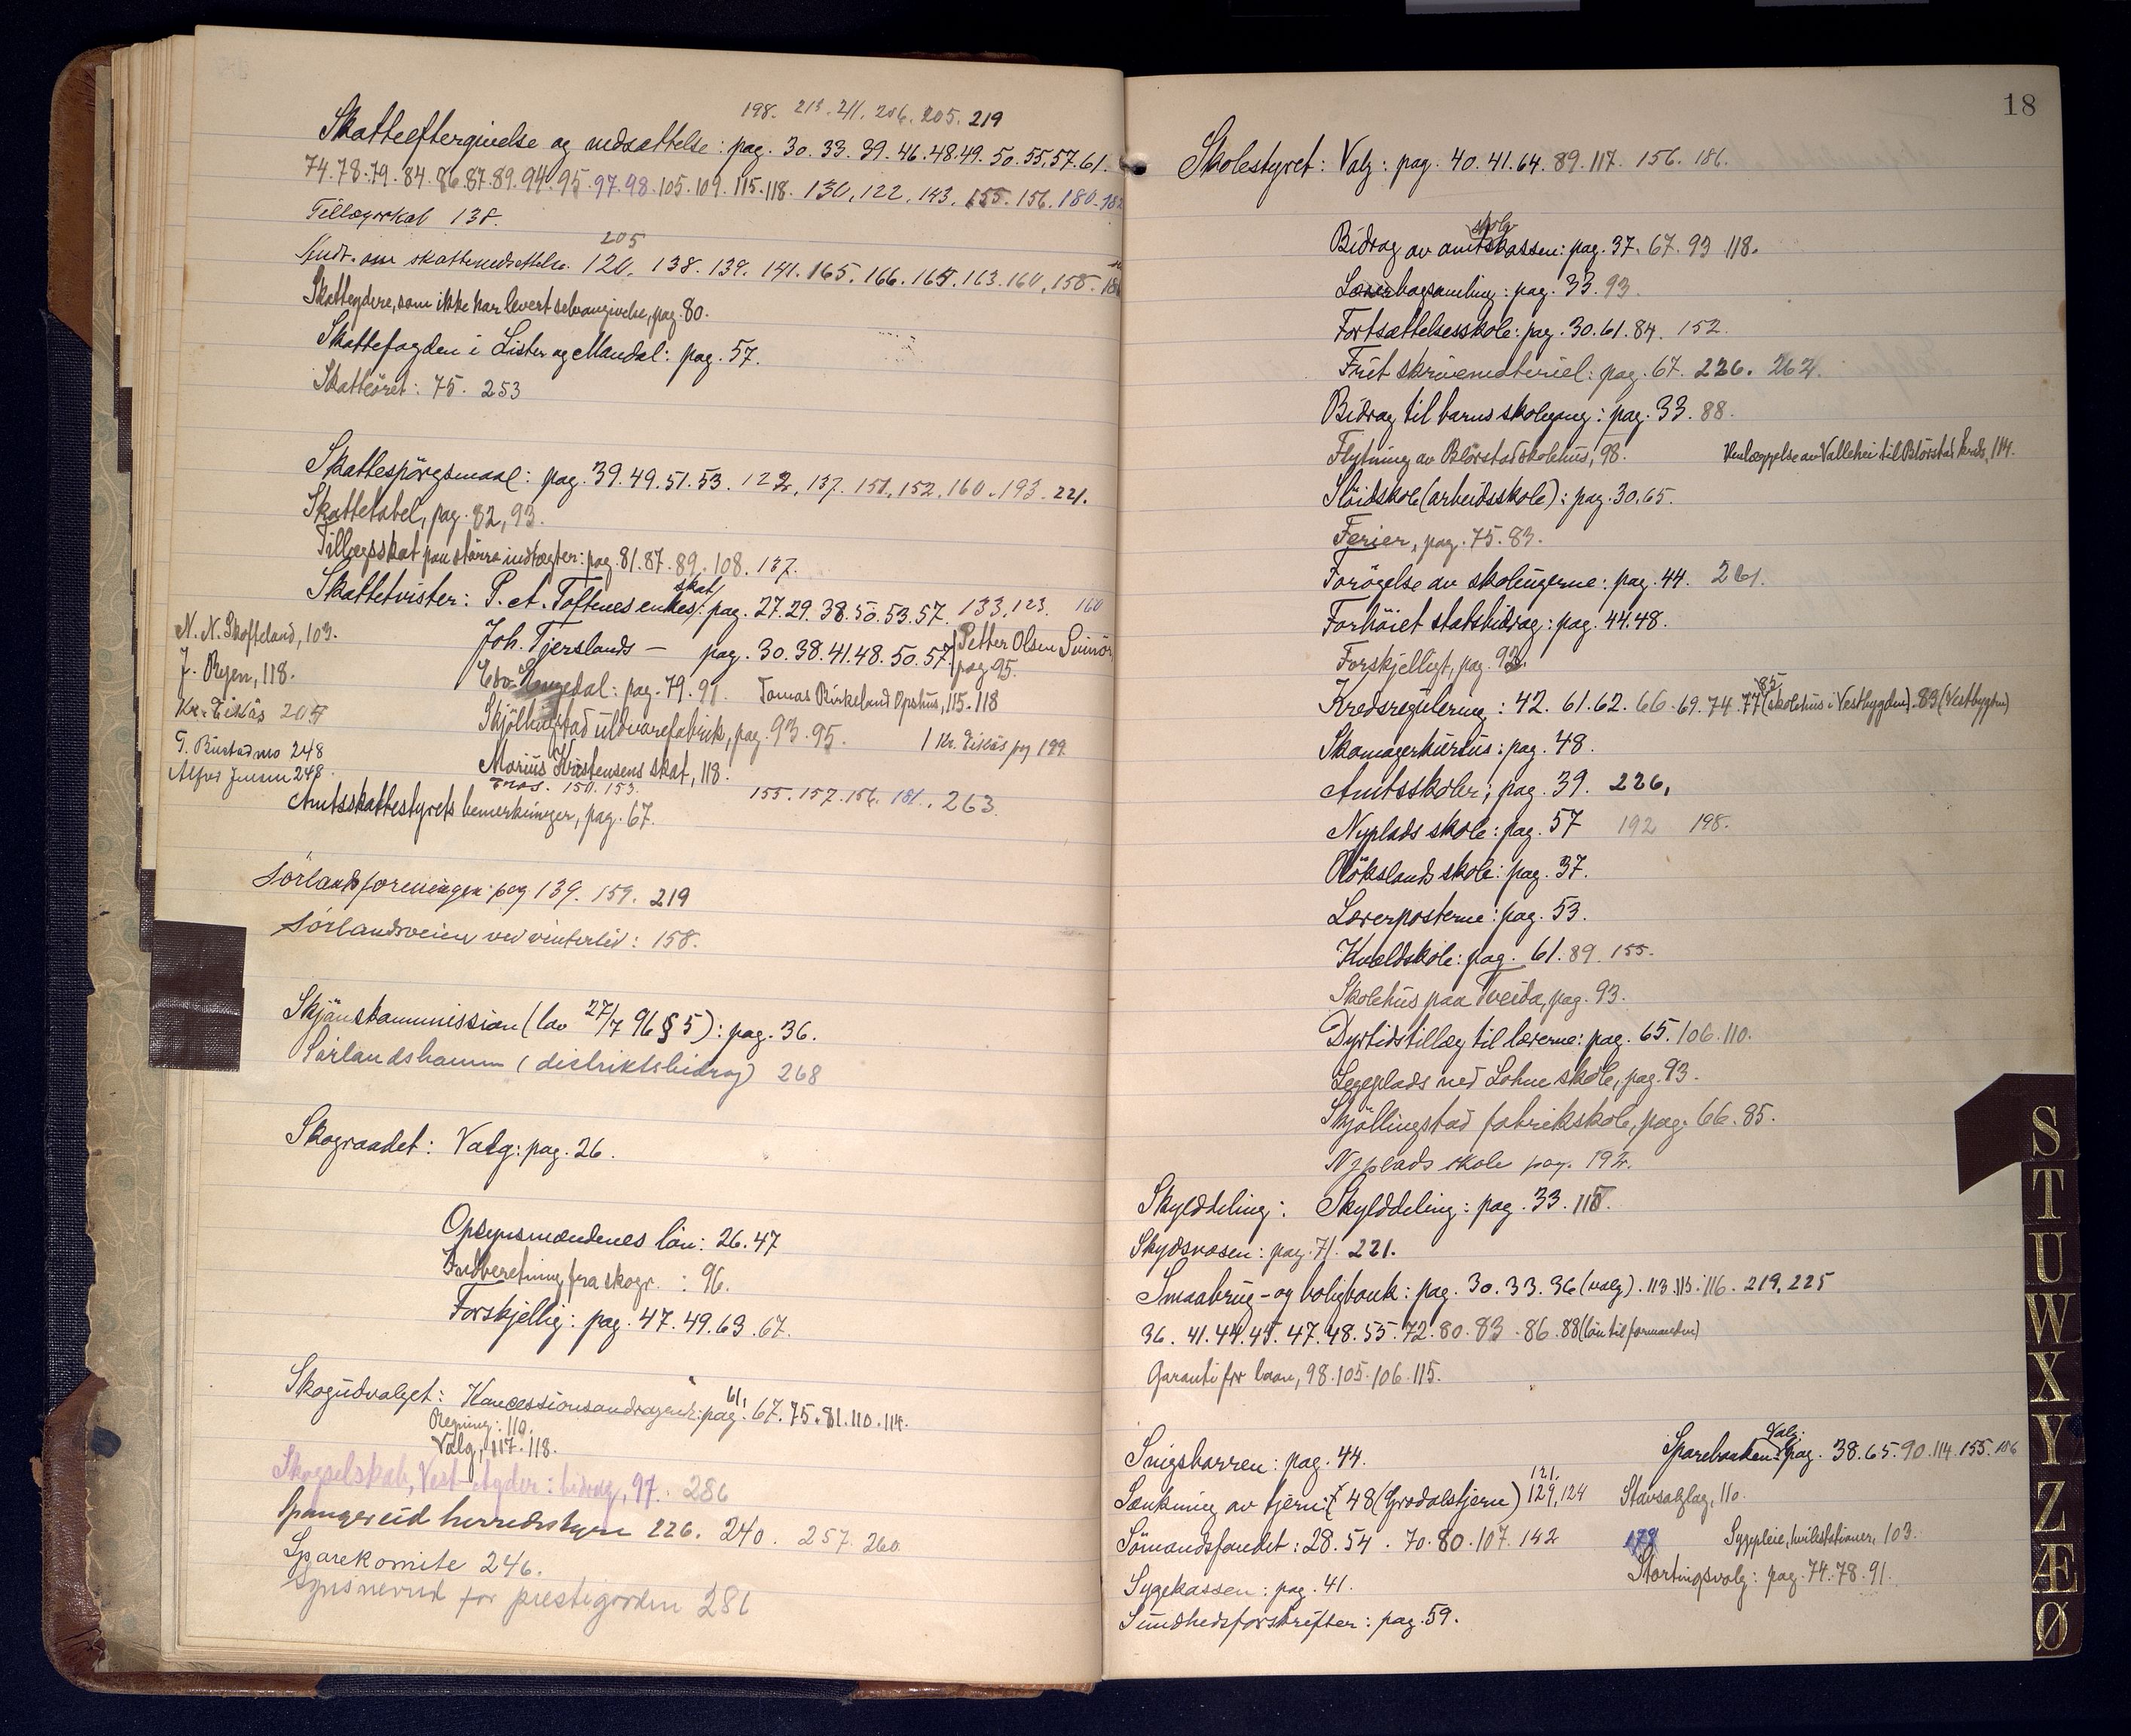 198. 213. 211. 206. 205. 219
Skatteeftergivelse og nedsættelse: pag. 30. 33. 39. 46. 48. 49. 50. 55. 57. 61.
74. 78. 79. 84. 86. 87. 89. 94. 95. 97. 98. 105. 109. 115. 118. 130, 122, 143. 155. 156. 180. 182
Tillægsskat 138.
205
Andr. om skattenedsettelse. 120, 138. 139. 141. 165. 166. 164. 163. 160, 158.
Skatteydere, som ikke har levert selvangivelse, pag. 80.
Skattefogden i Lister og Mandal: pag. 57.
Skatteöret: 75. 253
Skattespörgsmaal: pag. 39. 49. 51. 53. 122, 137. 151, 152, 160. 193. 221.
Skattetabel, pag. 82, 93.
Tillægsskat paa större indtægter: pag. 81. 87. 89. 108. 137.
Skattetvister: P. A. Toftenes enkes skat: pag. 27. 29. 38. 50. 53. 57. 133, 123. 160
N. N. Skofteland, 103.
Joh. Tjerslands — pag. 30. 38. 41. 48. 50. 57. Petter Olsen Svinör pag. 95.
J. Rejen, 118.
Edv. Engedal: pag. 79. 91. Tomas Birkeland Opshus, 115. 118
Kr. Eikås 207
Skjöllingstad uldvarefabrik, pag. 93. 95. Kr. Eikås pag 199
T. Buestad mo 248
Marius Kristensens skat, 118.
Alfred Jensen 248.
150. 153. 155. 157. 156. 181. 263.
Amtsskattestyrets bemerkninger, pag. 67.
Sörlandsforeningen pag 139. 159. 219
Sörlandsveien ved vintertid: 158.
Skjönskommission (lov 27/7 96 § 5): pag. 36.
Sörlandsheimen (distriktsbidrag) 268
Skograadet: Valg: pag. 26.
Opsynsmændenes lön: 26. 47
Indberetning fra skogr. : 96.
Forskjellig: pag. 47. 49. 63. 67.
Skogudvalget: Koncessionsandragende: pag. 61, 67. 75. 81. 110. 114.
Regning: 110.
Valg, 117. 118.
Skogselskab, Vest-Agder: bidrag, 97. 286
Spangereid herredsstyre 226. 240. 257. 260
Sparekomite 246.
Synsnevnd for prestigorden 281
18
Skolestyret: Valg: pag. 40. 41. 64. 89. 117. 156. 186.
Bidrag av amtsskolekassen: pag. 37. 67. 93 118.
Lærerbogsamling: pag. 33. 93.
Fortsættelsesskole: pag. 30. 61. 84. 152.
Frit skrivemateriel: pag. 67. 226. 262.
Bidrag til barns skolegang: pag. 33. 88.
Flytning av Blörstad skolehus, 98. Henlæggelse av Vallehei til Blörstad kreds, 114.
Slöidskole (arbeidsskole): pag. 30. 65.
Ferier, pag. 75. 83.
Forögelse av skoleugerne: pag. 44. 261.
Forhöiet statsbidrag: pag. 44. 48.
Forskjelligt, pag. 92.
Kredsregulering: 42. 61. 62. 66. 69. 74. 77 85 (skolehus i Vestbygden). 83 (Vestbygden)
Skomagerkursus: pag. 48.
Amtsskoler: pag. 39. 226,
Nyplads skole: pag. 57 192 198.
Rökslands skole: pag. 37.
Lærerposterne: pag. 53.
Kveldskole: pag. 61. 89. 155.
Skolehus paa Tveida, pag. 93.
Dyrtidstillæg til lærerne: pag. 65. 106. 110.
Legeplads ved Lohne skole, pag. 93.
Skjöllingstad fabrikskole, pag. 66. 85.
Nyplads skole pag. 192.
Skylddeling: Skylddeling: pag. 33. 115.
Skydsvæsen: pag. 71. 221.
Smaabrug- og boligbank: pag. 30. 33. 36 (valg). 113. 115. 116. 219, 225
36. 41. 44. 45. 47. 48. 55. 72. 80. 83. 86. 88 (lön til formanden)
Garanti for laan, 98. 105. 106. 115.
Snigsbarren: pag. 44.
Sparebanken: Valg: pag. 38. 65. 90. 114. 155. 186
Sænkning av tjern: 48 (Grodalstjern) 121. 129, 124 Stavsalslag, 110.
Sömandsfondet: 28. 54. 70. 80. 107. 142 179 Sygepleie, hvilestationer, 103.
Sygekassen: pag. 41. Stortingsvalg: pag. 74. 78. 91.
Sundhedsforskrifter: pag. 59.
S
T
U
W
X
Y
Z
Æ
Ø